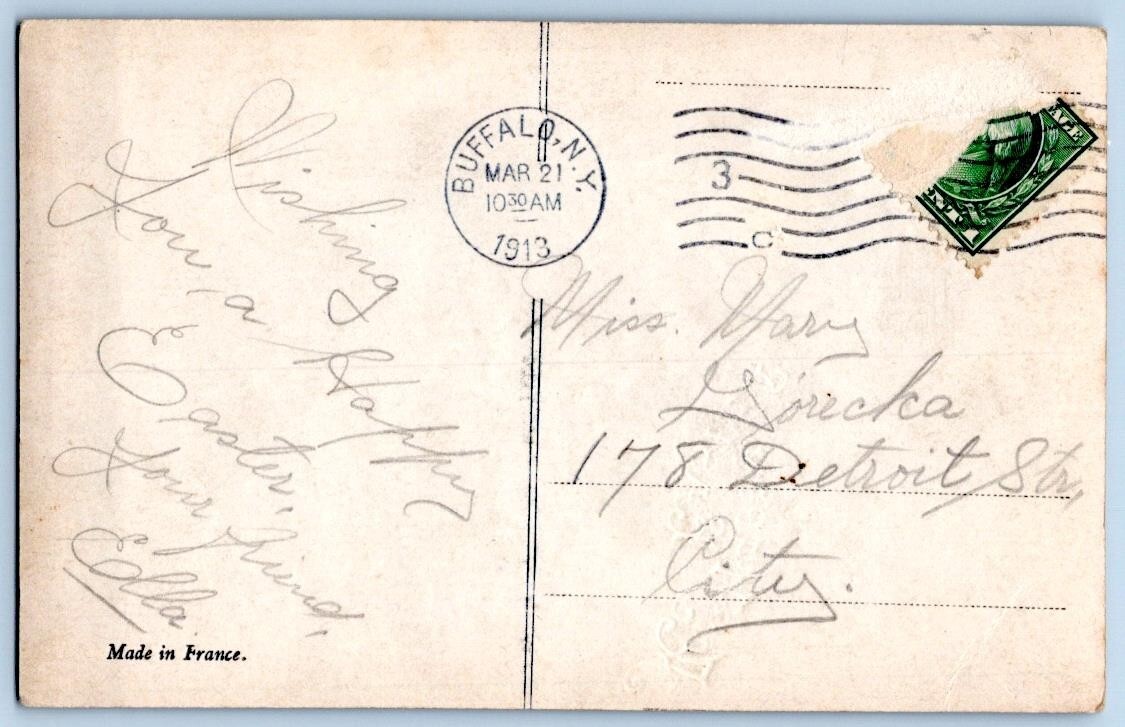 Wishing
You, a Happy
Easter,
Your friend,
Ella.
Made in France.
BUFFALO, N.Y.
MAR 21
10 30 AM
1913
3
C
Miss. Mary
Gorecka
178 Detroit, Str,
City.